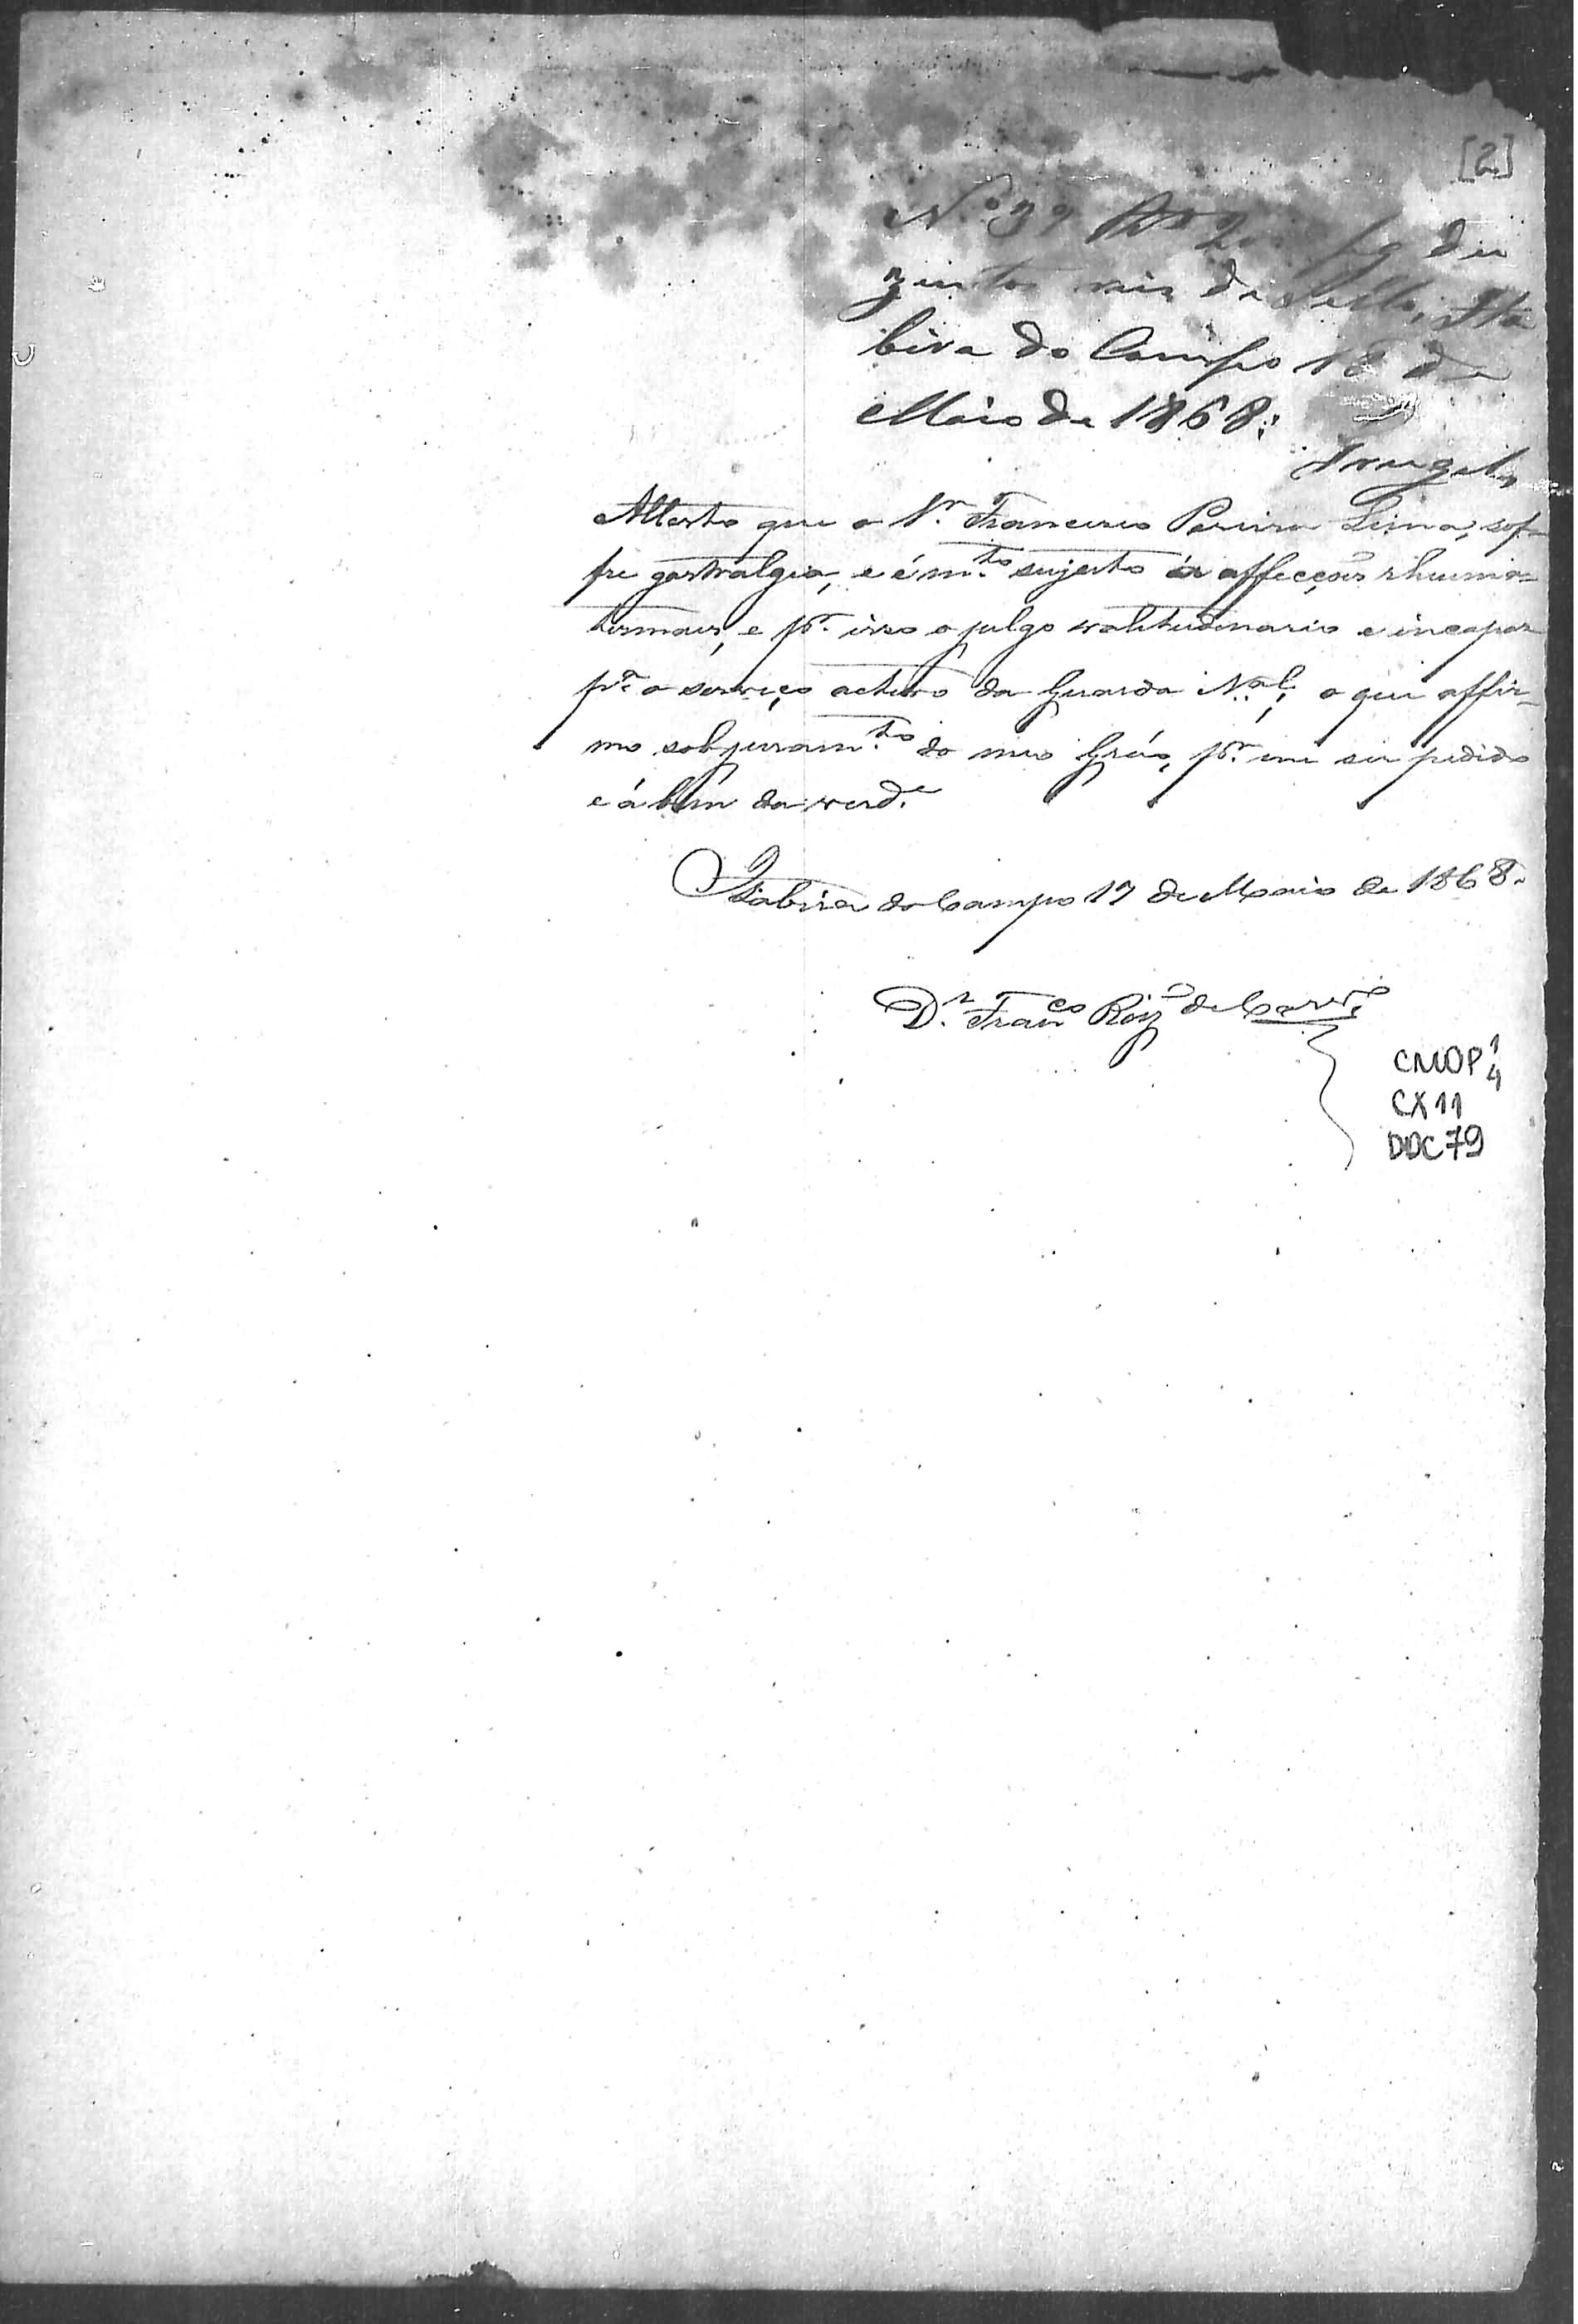 [2]
N.º 39 du
zentos reis de Sello, Ita
bira do Campo 18 de
Maio de 1868.
Attesto que o Sr. Francisco Pereira Lima, sof-
fre gastralgia, e é m.to sujeito á affecções rheuma-
tismaes, e pr. isso o julgo valitudinario e incapaz
pa. o serviço activo da Guarda N.al; o que affir-
mo sob juram.to do meo Gráo, pr. me ser pedido
e á bem da verd.e
Itabira do Campo 17 de Maio de 1868.
Dr. Fran.co Roiz de Carv.o
CMOP 1/4
CX 11
DOC 79